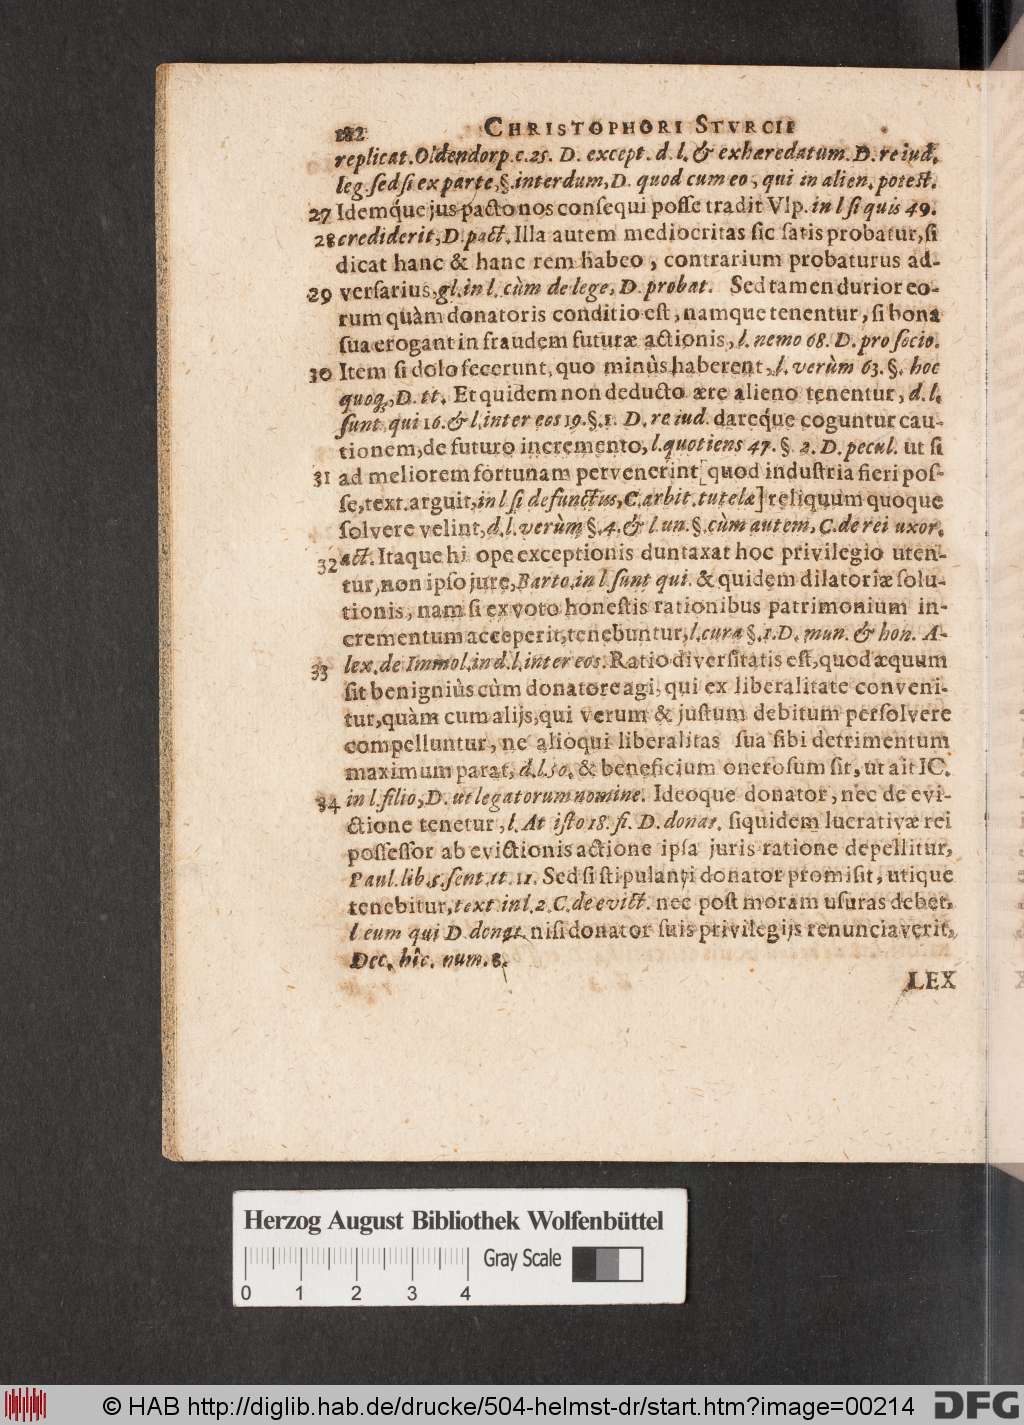 182 CHRISTOPHORI STVRCII
replicat. Oldendorp. c. 25. D. except. d. l. & exhæredatum. D. re iud.
leg. sed si ex parte, §. interdum, D. quod cum eo, qui in alien. potest.
27 Idemq́ue jus pacto nos consequi posse tradit Vlp. in l si quis 49.
28 crediderit, D. pact. Illa autem mediocritas sic satis probatur, si
dicat hanc & hanc rem habeo, contrarium probaturus ad-
29 versarius, gl. in l. cùm de lege, D. probat. Sed tamen durior eo-
rum quàm donatoris conditio est, namque tenentur, si bona
sua erogant in fraudem futuræ actionis, l. nemo 68. D. pro socio.
30 Item si dolo fecerunt, quo minùs haberent, l. verùm 63. §. hoc
quoq, D. tt. Et quidem non deducto ære alieno tenentur, d. l.
sunt qui 16. & l. inter eos 19. §. 1. D. re iud. dareq́ue coguntur cau-
tionem, de futuro incremento, l. quotiens 47. § 2. D. pecul. ut si
31 ad meliorem fortunam pervenerint [quod industria fieri pos-
se, text. arguit, in l si defunctus, C. arbit. tutelæ] reliquum quoque
solvere velint, d. l. verùm §. 4. & l un. §. cùm autem, C. de rei uxor.
32 act. Itaque hi ope exceptionis duntaxat hoc privilegio uten-
tur, non ipso jure, Barto. in l. sunt qui. & quidem dilatoriæ solu-
tionis, nam si ex voto honestis rationibus patrimonium in-
crementum acceperit, tenebuntur, l. cura §. 1. D. mun. & hon. A-
33 lex. de Immol. in d. l. inter eos. Ratio diversitatis est, quod æquum
sit benigniùs cùm donatore agi, qui ex liberalitate conveni-
tur, quàm cum alijs, qui verum & justum debitum persolvere
compelluntur, ne alioqui liberalitas sua sibi detrimentum
maximum parat, d. l. 50. & beneficium onerosum sit, ut ait IC.
34 in l. filio, D. ut legatorum nomine. Ideoque donator, nec de evi-
ctione tenetur, l. At isto 18. fi. D. donat. siquidem lucrativæ rei
possessor ab evictionis actione ipsa juris ratione depellitur,
Paul. lib. 5. sent. tt. 11. Sed si stipulanti donator promisit, utique
tenebitur, text in l. 2. C. de evict. nec post moram usuras debet.
l eum qui D donat. nisi donator suis privilegijs renunciaverit.
Dec. hîc. num. 8.
LEX
Herzog August Bibliothek Wolfenbüttel
Gray Scale
0 1 2 3 4
© HAB http://diglib.hab.de/drucke/504-helmst-dr/start.htm?image=00214 DFG